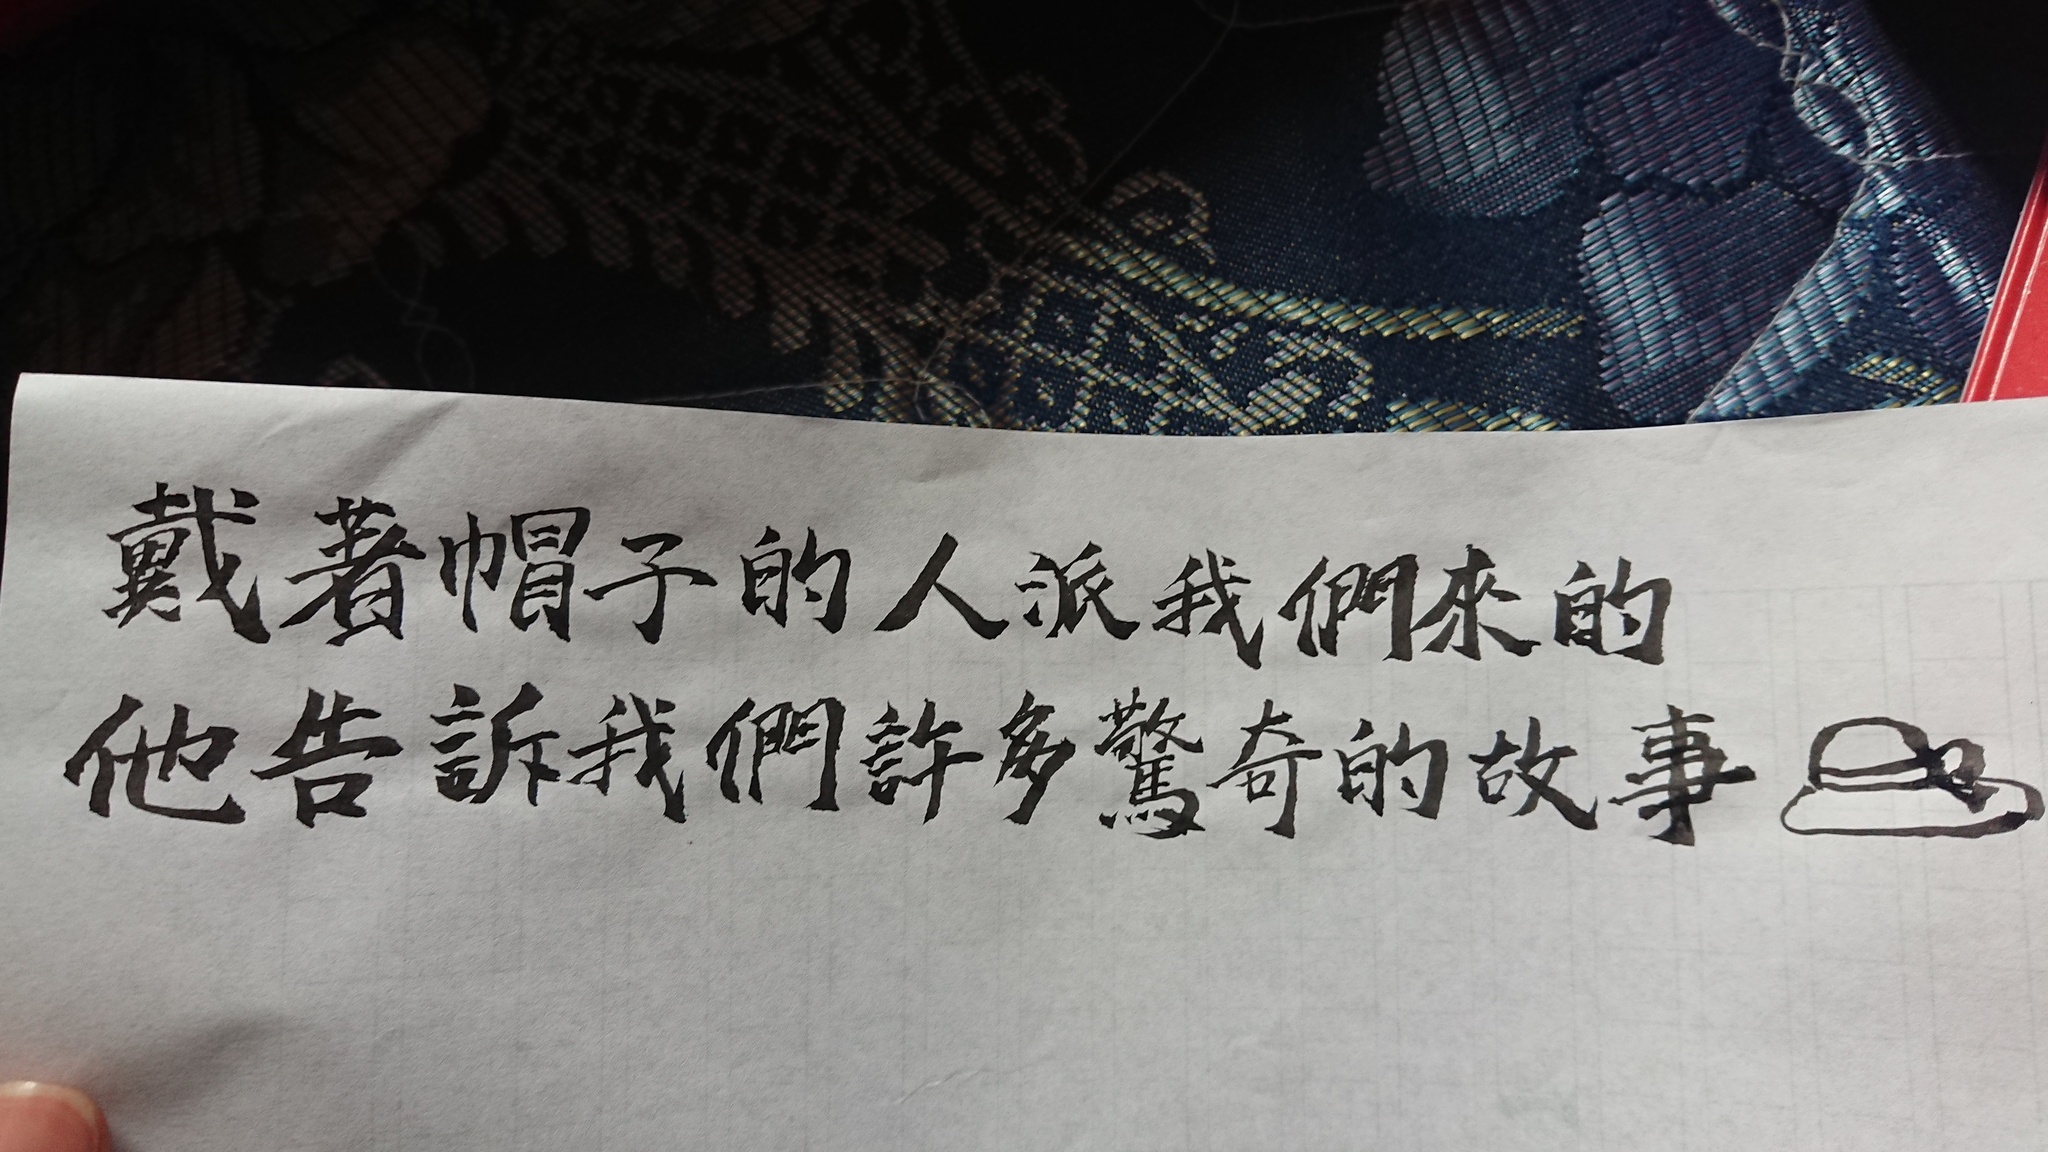 戴著帽子的人派我們來的
他告訴我們許多驚奇的故事